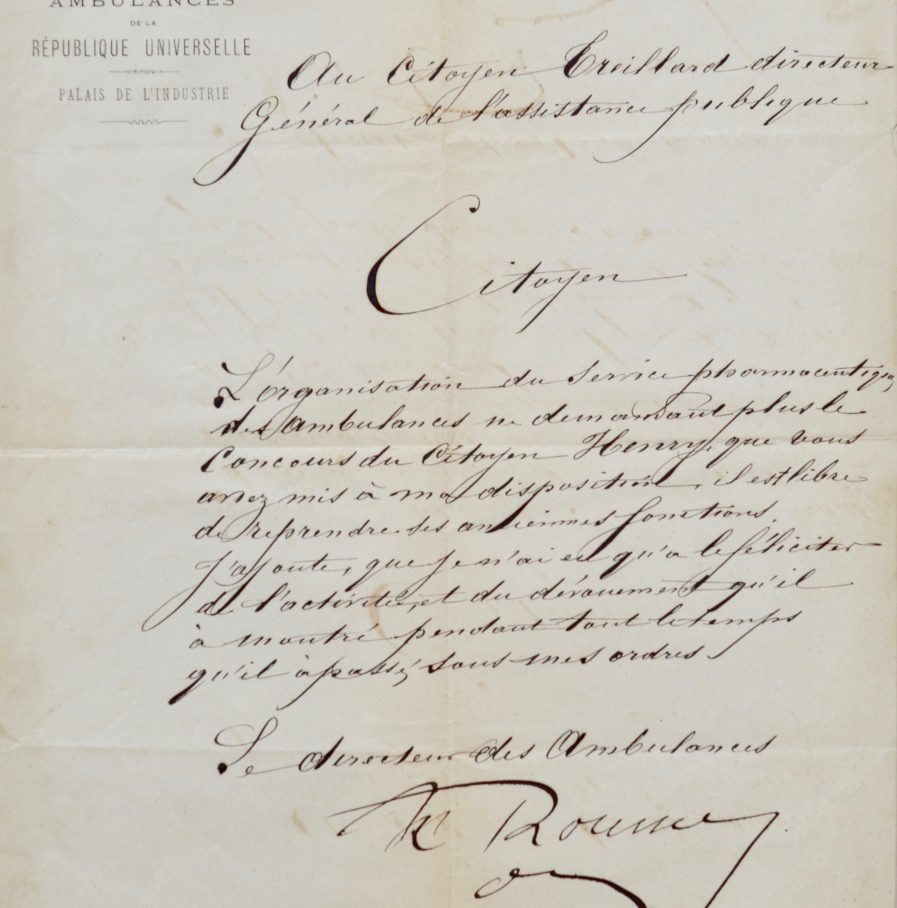 AMBULANCES
DE LA
RÉPUBLIQUE UNIVERSELLE
PALAIS DE L'INDUSTRIE
Au Citoyen Treillard directeur
Général de l'assistance publique
Citoyen
L'organisation du service pharmaceutique
des ambulances ne demandant plus le
Concours du Citoyen Henry, que vous
aviez mis à ma disposition, il est libre
de reprendre ses anciennes fonctions.
J'ajoute, que je n'ai eu qu'a le féliciter
de l'activitée, et du dévouement qu'il
à montré pendant tout le temps
qu'il à passé, sous mes ordres.
Le directeur des Ambulances